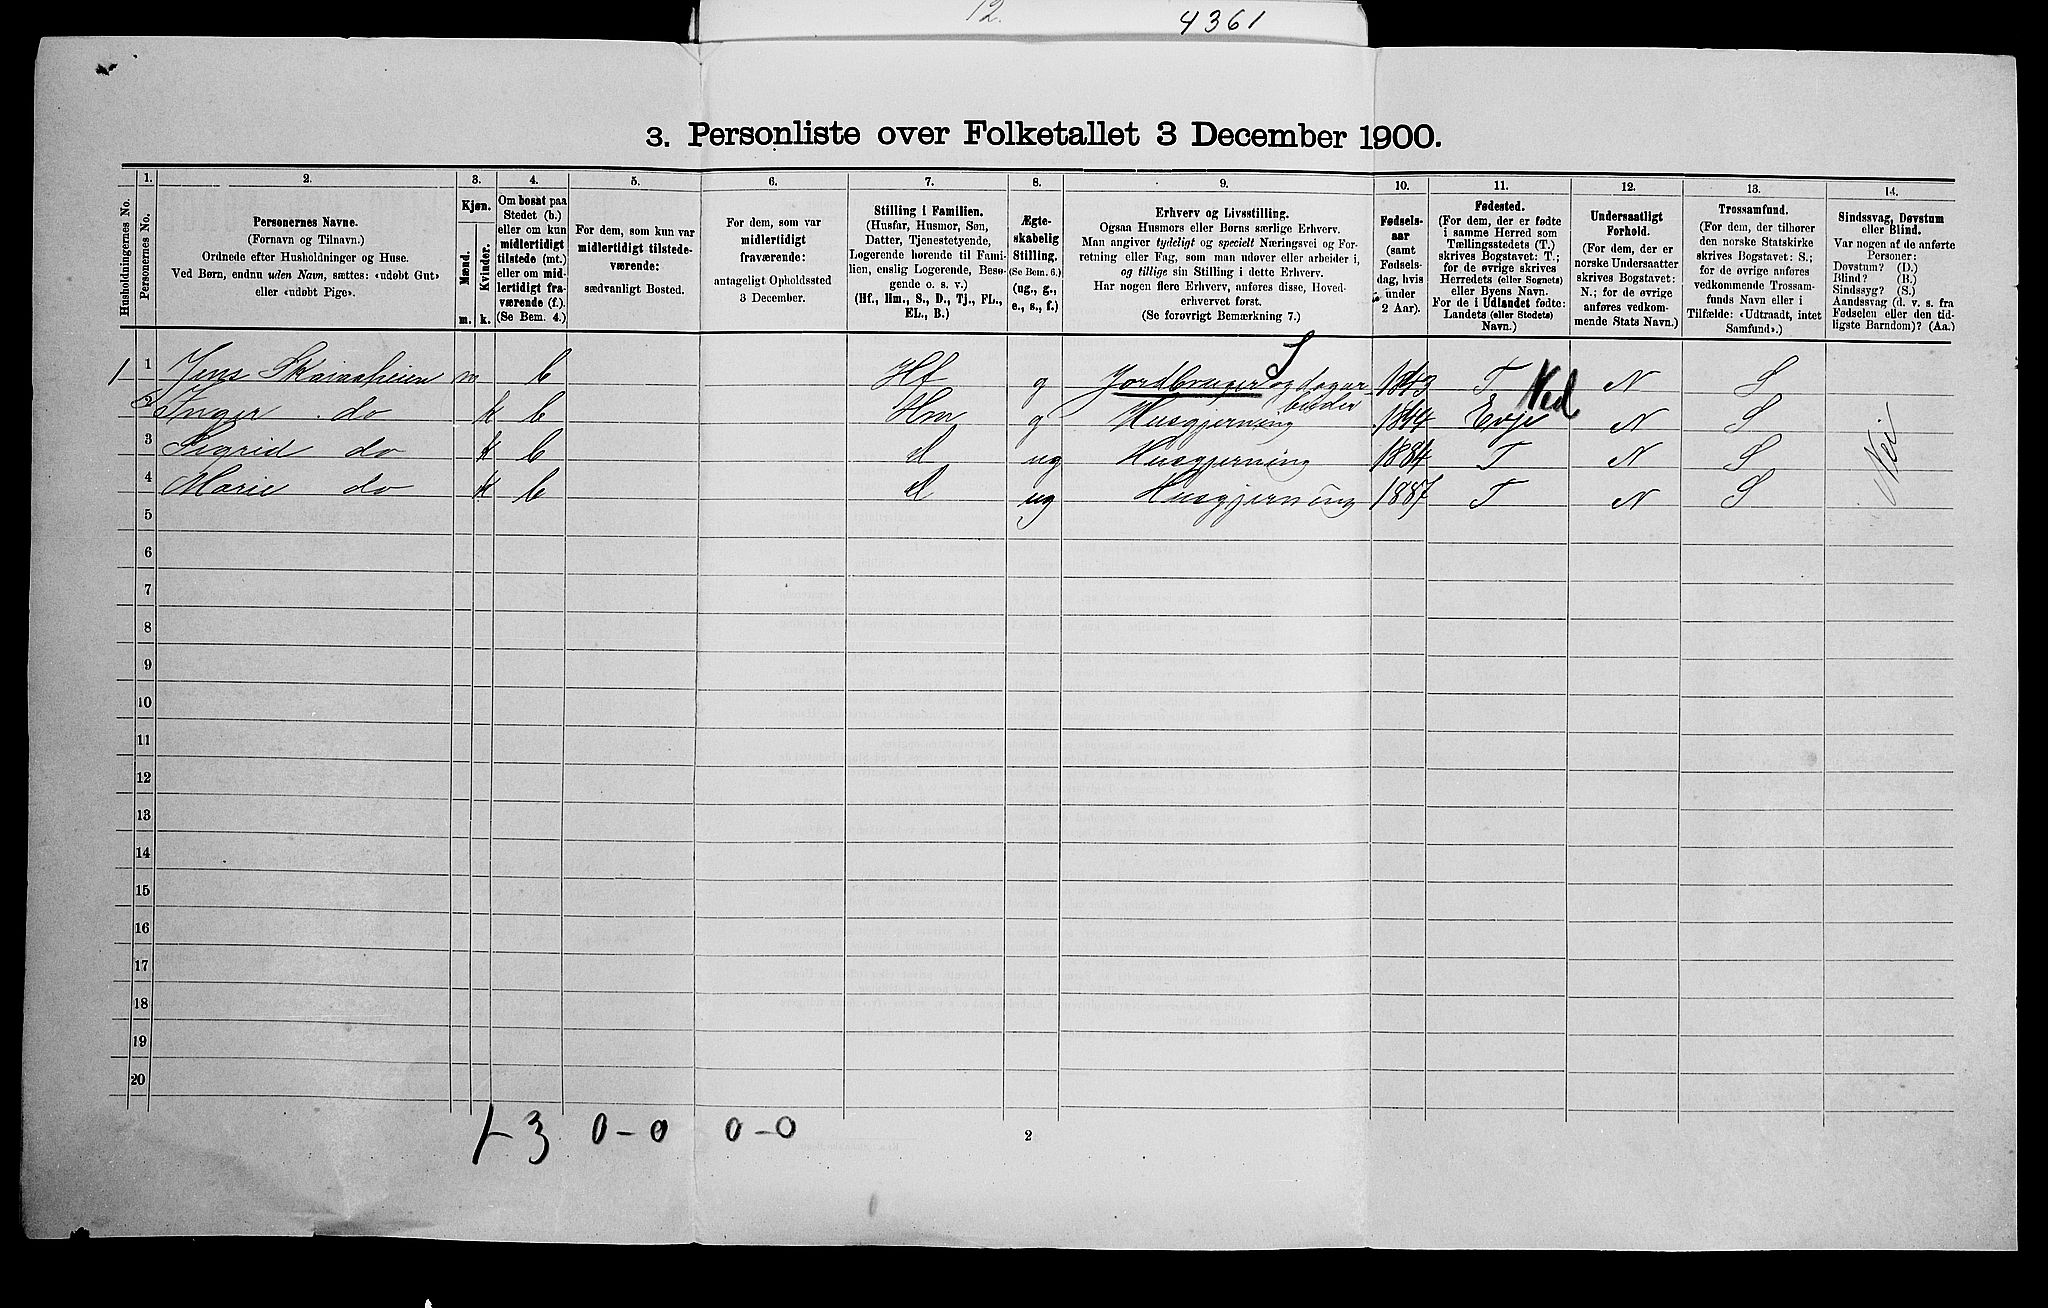 12.
4361
3. Personliste over Folketallet 3 December 1900.
Husholdningernes No.
1.
Personernes No.
2.
Personernes Navne.
(Fornavn og Tilnavn.)
Ordnede efter Husholdninger og Huse.
Ved Børn, endnu uden Navn, sættes: «udøbt Gut»
eller «udøbt Pige».
3.
Kjøn.
Mænd.
Kvinder.
m.
k.
4.
Om bosat paa
Stedet (b.)
eller om kun
midlertidigt
tilstede (mt.)
eller om mid-
lertidigt fra-
værende (f.).
(Se Bem. 4.)
5.
For dem, som kun var
midlertidigt tilstede-
værende:
sædvanligt Bosted.
6.
For dem, som var
midlertidigt
fraværende:
antageligt Opholdssted
3 December.
7.
Stilling i Familien.
(Husfar, Husmor, Søn,
Datter, Tjenestetyende,
Logerende hørende til Fami-
lien, enslig Logerende, Besø-
gende o. s. v.)
(Hf., Hm., S., D., Tj., FL.,
EL., B.)
8.
Ægte-
skabelig
Stilling.
(Se Bem. 6.)
(ug., g.,
e., s., f.)
9.
Erhverv og Livsstilling.
Ogsaa Husmors eller Børns særlige Erhverv.
Man angiver tydeligt og specielt Næringsvei og For-
retning eller Fag, som man udøver eller arbeider i,
og tillige sin Stilling i dette Erhverv.
Har nogen flere Erhverv, anføres disse, Hoved-
erhvervet først.
(Se forøvrigt Bemærkning 7.)
10.
Fødsels-
aar
(samt
Fødsels-
dag, hvis
under
2 Aar).
11.
Fødested.
(For dem, der er fødte
i samme Herred som
Tællingsstedets (T.)
skrives Bogstavet: T.;
for de øvrige skrives
Herredets (eller Sognets)
eller Byens Navn.
For de i Udlandet fødte:
Landets (eller Stedets)
Navn.)
12.
Undersaatligt
Forhold.
(For dem, der er
norske Undersaatter
skrives Bogstavet:
N.; for de øvrige
anføres vedkom-
mende Stats Navn.)
13.
Trossamfund.
(For dem, der tilhører
den norske Statskirke
skrives Bogstavet: S.;
for de øvrige anføres
vedkommende Trossam-
funds Navn eller i
Tilfælde: «Udtraadt, intet
Samfund».)
14.
Sindssvag, Døvstum
eller Blind.
Var nogen af de anførte
Personer:
Døvstum? (D.)
Blind? (B.)
Sindssyg? (S.)
Aandssvag (d. v. s. fra
Fødselen eller den tid-
ligste Barndom)? (Aa.)
1 1 Jens Skaiaaheien m b Hf g Jordbruger og dagar- 1843 T N S
S
beider
Ved
2 Inger do k b Hm g Husgjerning 1844 Evje N S
3 Sigrid do k b d ug Husgjerning 1884 T N S
4 Marie do k b d ug Husgjerning 1887 T N S
Nei
5
6
7
8
9
10
11
12
13
14
15
16
17
18
19
20
1-3 0-0 0-0
2